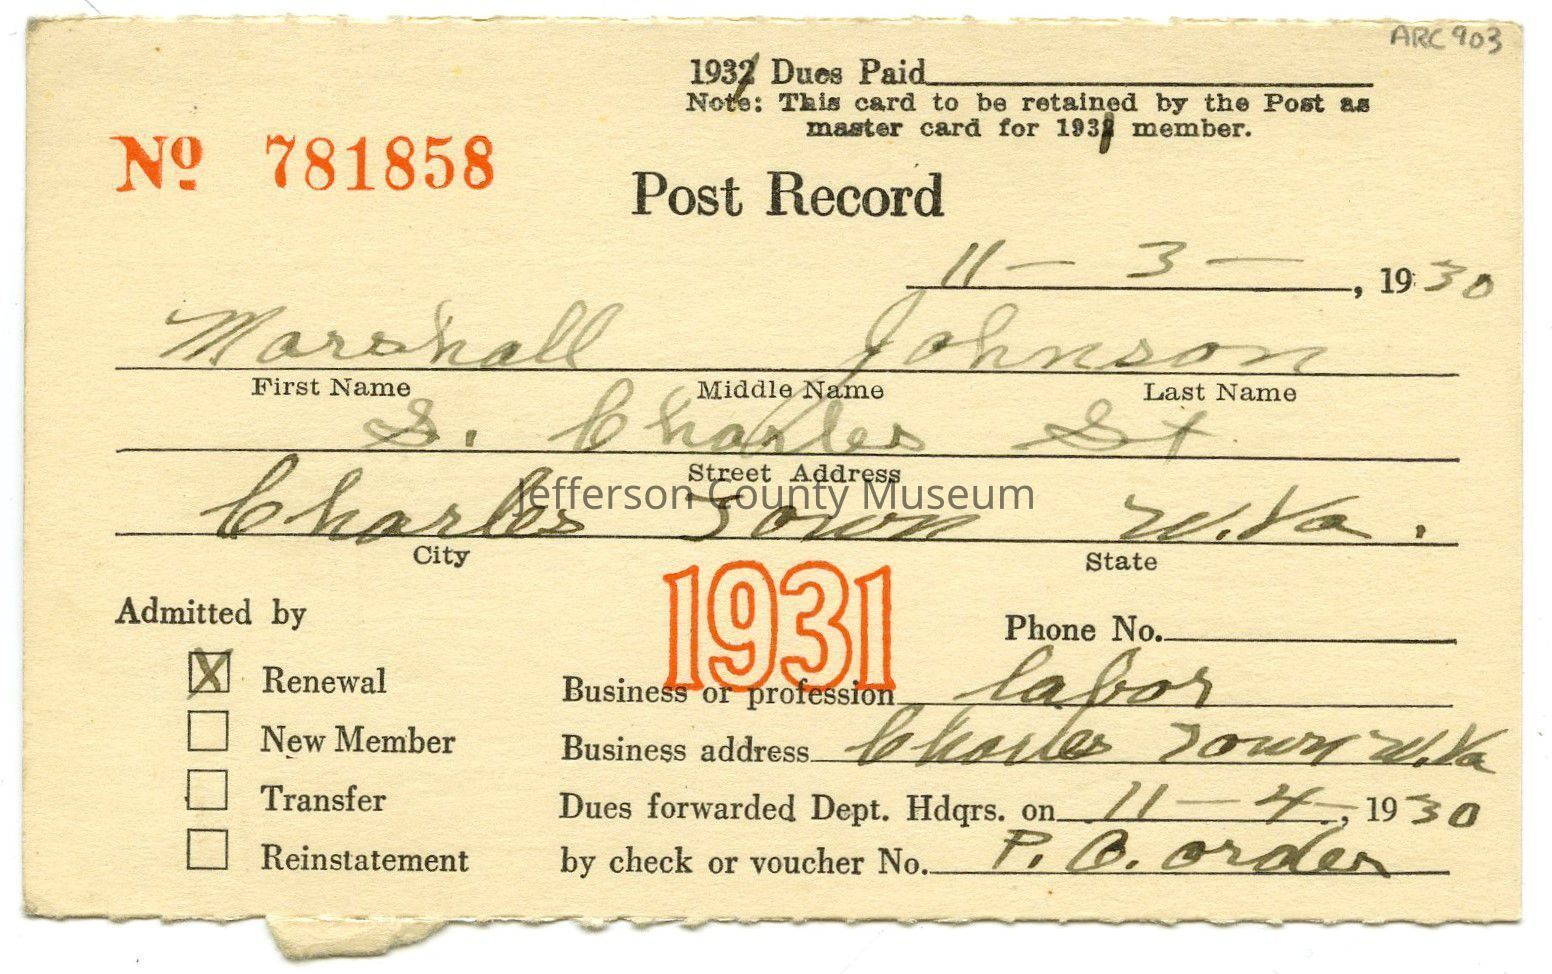 ARC 903
1931 Dues Paid
Note: This card to be retained by the Post as
master card for 1931 member.
No 781858
Post Record
11 - 3 - , 1930
Marshall Johnson
First Name Middle Name Last Name
S. Charles St
Street Address
Jefferson County Museum
Charles Town W.Va.
City State
1931
Admitted by
Phone No.
X Renewal
Business or profession labor
New Member
Business address Charles Town W.Va
Transfer
Dues forwarded Dept. Hdqrs. on 11 - 4 - , 1930
Reinstatement
by check or voucher No. P. O. order